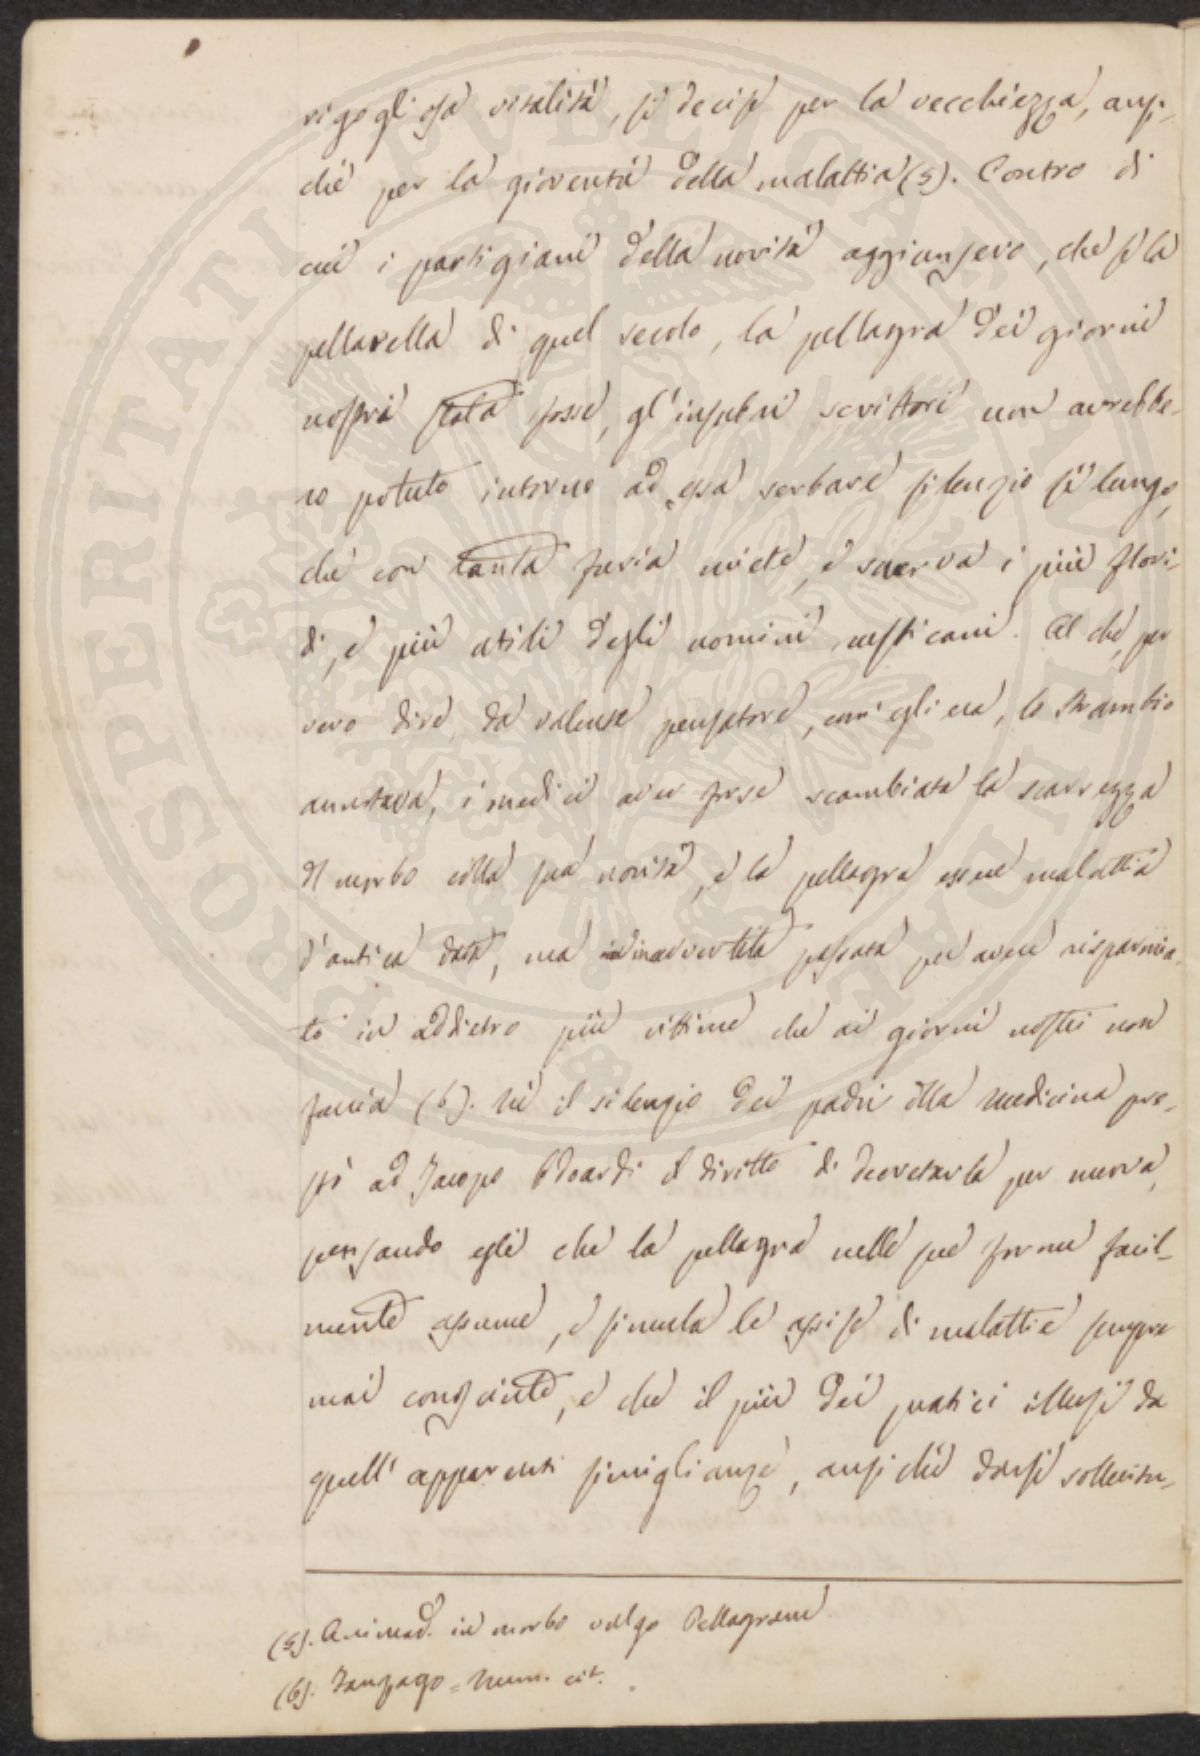 rigogliosa vitalità, si decise per la vecchiezza, anzi-
chè per la gioventù della malattia (5). Contro di
cui i partigiani della novità aggiunsero, che se la
pellarella di quel secolo, la pellagra dei giorni
nostri stata fosse, gl'insubri scrittori non avrebbe-
ro potuto intorno ad essa serbare silenzio sì lungo,
che con tanta furia miete, e snerva i più flori-
di, e più utili degli uomini rusticani. Al che, per
vero dire da valente pensatore, com'egli era, lo Strambio
annotava, i medici aver forse scambiata la scarsezza
del morbo colla sua novità, e la pellagra essere malattia
d'antica data, ma inavvertita passata per avere risparmia-
to in addietro più vittime che ai giorni nostri non
faccia (6). Nè il silenzio dei padri della medicina pre-
stò ad Jacopo Odoardi il diritto di decretarla per nuova,
pensando egli che la pellagra nelle sue forme facil-
mente assume, e simula le assise di malattie sempre
mai conosciute, e che il più dei pratici illusi da
quell'apparenti simiglianze, anzi chè darsi sollecitu-
(5). Animad. in morbo vulgo Pellagram
(6). Fanzago = Mem. cit.
PROSPERITATI PVBLICAE